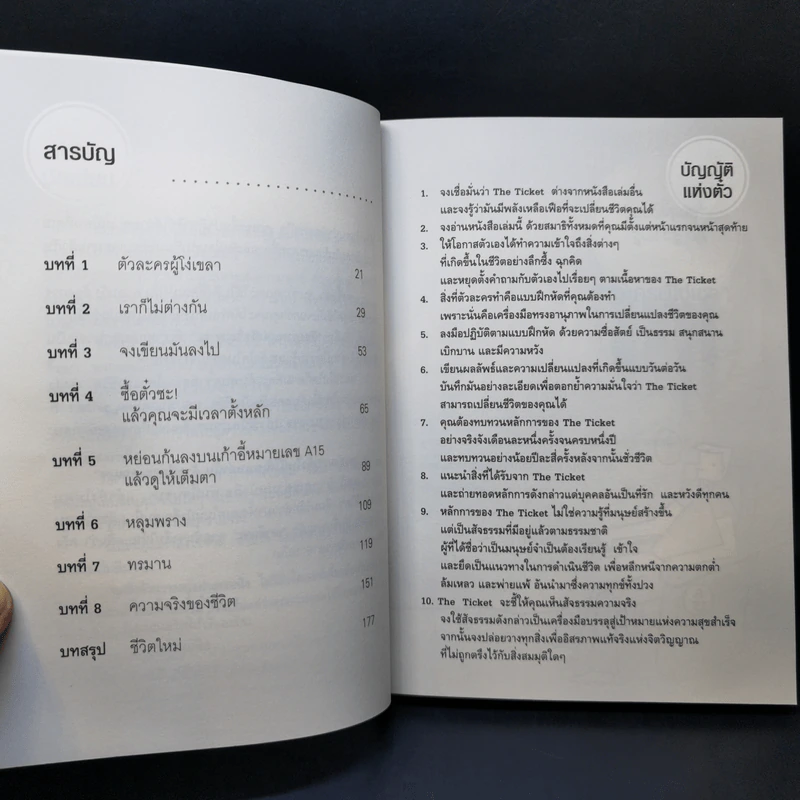 สารบัญ
บทที่ 1 ตัวละครผู้โง่เขลา 21
บทที่ 2 เราก็ไม่ต่างกัน 29
บทที่ 3 จงเขียนมันลงไป 53
บทที่ 4 ซื้อตั๋วซะ!
แล้วคุณจะมีเวลาตั้งหลัก 65
บทที่ 5 หย่อนก้นลงบนเก้าอี้หมายเลข A15
แล้วดูให้เต็มตา 89
บทที่ 6 หลุมพราง 109
บทที่ 7 ทรมาน 119
บทที่ 8 ความจริงของชีวิต 151
บทสรุป ชีวิตใหม่ 177
บัญญัติ
แห่งตั๋ว
1. จงเชื่อมั่นว่า The Ticket ต่างจากหนังสือเล่มอื่น
และจงรู้ว่ามันมีพลังเหลือเฟือที่จะเปลี่ยนชีวิตคุณได้
2. จงอ่านหนังสือเล่มนี้ ด้วยสมาธิทั้งหมดที่คุณมีตั้งแต่หน้าแรกจนหน้าสุดท้าย
3. ให้โอกาสตัวเองได้ทำความเข้าใจถึงสิ่งต่างๆ
ที่เกิดขึ้นในชีวิตอย่างลึกซึ้ง ฉุกคิด
และหยุดตั้งคำถามกับตัวเองไปเรื่อยๆ ตามเนื้อหาของ The Ticket
4. สิ่งที่ตัวละครทำคือแบบฝึกหัดที่คุณต้องทำ
เพราะนั่นคือเครื่องมือทรงอานุภาพในการเปลี่ยนแปลงชีวิตของคุณ
5. ลงมือปฏิบัติตามแบบฝึกหัด ด้วยความซื่อสัตย์ เป็นธรรม สนุกสนาน
เบิกบาน และมีความหวัง
6. เขียนผลลัพธ์และความเปลี่ยนแปลงที่เกิดขึ้นแบบวันต่อวัน
บันทึกมันอย่างละเอียดเพื่อตอกย้ำความมั่นใจว่า The Ticket
สามารถเปลี่ยนชีวิตของคุณได้
7. คุณต้องทบทวนหลักการของ The Ticket
อย่างจริงจังเดือนละหนึ่งครั้งจนครบหนึ่งปี
และทบทวนอย่างน้อยปีละสี่ครั้งหลังจากนั้นชั่วชีวิต
8. แนะนำสิ่งที่ได้รับจาก The Ticket
และถ่ายทอดหลักการดังกล่าวแด่บุคคลอันเป็นที่รัก และหวังดีทุกคน
9. หลักการของ The Ticket ไม่ใช่ความรู้ที่มนุษย์สร้างขึ้น
แต่เป็นสัจธรรมที่มีอยู่แล้วตามธรรมชาติ
ผู้ที่ได้ชื่อว่าเป็นมนุษย์จำเป็นต้องเรียนรู้ เข้าใจ
และยึดเป็นแนวทางในการดำเนินชีวิต เพื่อหลีกหนีจากความตกต่ำ
ล้มเหลว และพ่ายแพ้ อันนำมาซึ่งความทุกข์ทั้งปวง
10. The Ticket จะชี้ให้คุณเห็นสัจธรรมความจริง
จงใช้สัจธรรมดังกล่าวเป็นเครื่องมือบรรลุสู่เป้าหมายแห่งความสุขสำเร็จ
จากนั้นจงปล่อยวางทุกสิ่งเพื่ออิสรภาพแท้จริงแห่งจิตวิญญาณ
ที่ไม่ถูกตรึงไว้กับสิ่งสมมุติใดๆ